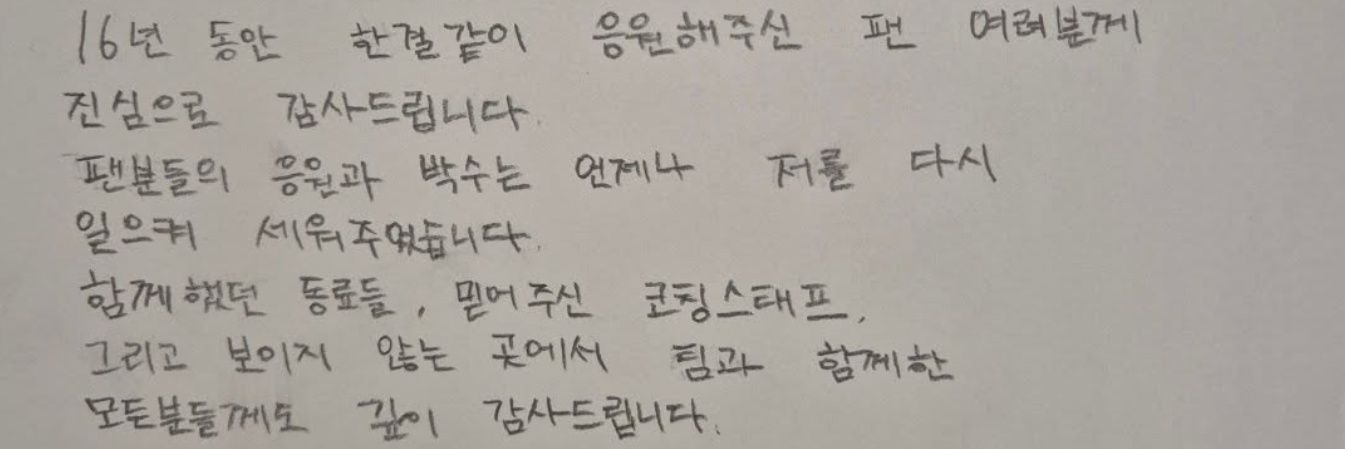 16년 동안 한결같이 응원해주신 팬 여러분께
진심으로 감사드립니다.
팬분들의 응원과 박수는 언제나 저를 다시
일으켜 세워주었습니다.
함께했던 동료들, 믿어주신 코칭스태프,
그리고 보이지 않는 곳에서 팀과 함께한
모든분들께도 깊이 감사드립니다.